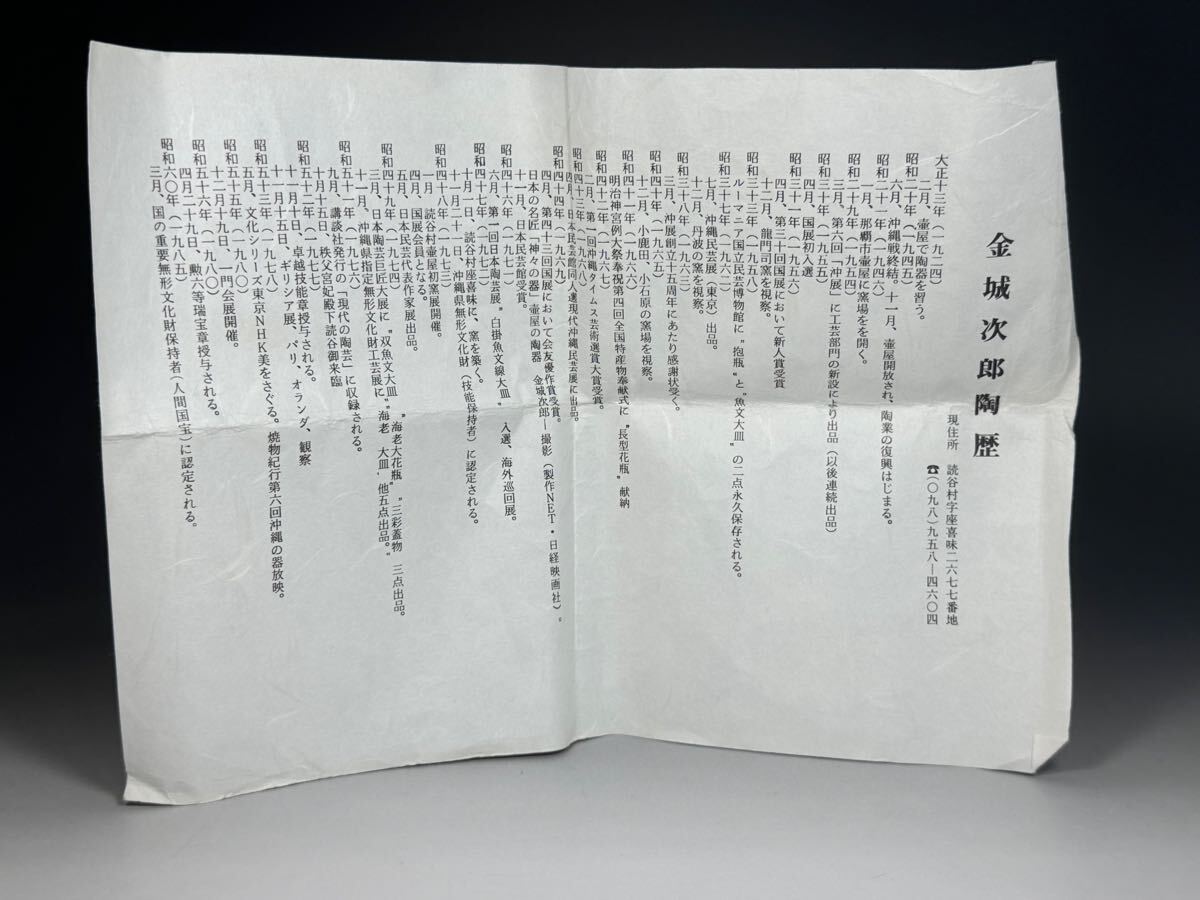 金城次郎陶歴
現住所　読谷村字座喜味二六七七番地
☎(〇九八)九五八―四六〇四
大正十三年(一九二四)
二月、壷屋で陶器を習う。
昭和二十年(一九四五)
六月、沖縄戦終結。十一月、壷屋開放され、陶業の復興はじまる。
昭和二十一年(一九四六)
一月、那覇市壷屋に窯場をを開く。
昭和二十九年(一九五四)
三月、第六回「沖展」に工芸部門の新設により出品(以後連続出品)
昭和三十年(一九五五)
四月、国展初入選
昭和三十一年(一九五六)
四月、第三十回国展において新人賞受賞
十二月、龍門司窯を視察。
昭和三十三年(一九五八)
ルーマニア国立民芸博物館に〝抱瓶〟と〝魚文大皿〟の二点永久保存される。
昭和三十七年(一九六二)
七月、沖縄民芸展(東京)出品。
十二月、丹波の窯を視察。
昭和三十八年(一九六三)
三月、沖展創立十五周年にあたり感謝状受く。
昭和四十年(一九六五)
十二月、小鹿田、小石原の窯場を視察。
昭和四十一年(一九六六)
明治神宮例大祭奉祝第四回全国特産物奉献式に〝長型花瓶〟献納
昭和四十二年(一九六七)
二月、第一回沖縄タイムス芸術選賞大賞受賞。
昭和四十三年(一九六八)
四月、日本民芸館同人選現代沖縄民芸展に出品。
昭和四十四年(一九六九)
四月、第四十三回国展において会友優作賞受賞。
日本の名匠「神々の器」壷屋の陶器　金城次郎―撮影(製作NET・日経映画社)。
十一月、日本民芸館受賞。
昭和四十六年(一九七一)
六月、第一回日本陶芸展〝白掛魚文線大皿〟入選、海外巡回展。
昭和四十七年(一九七二)
十月一日、読谷村座喜味に、窯を築く。
十一月二十一日、沖縄県無形文化財(技能保持者)に認定される。
昭和四十八年(一九七三)
一月　読谷村壷屋初窯展開催。
四月、国展会員となる。
五月、日本民芸代表作家展出品。
昭和四十九年(一九七四)
三月、日本陶芸巨匠大展に〝双魚文大皿〟〝海老大花瓶〟〝三彩蓋物　三点出品。
十一月、沖縄県指定無形文化財工芸展に〝海老　大皿、他五点出品。〟
昭和五十一年(一九七六)
九月、講談社発行の「現代の陶芸」に収録される。
十月十五日、秩父宮妃殿下読谷御来臨
昭和五十二年(一九七七)
十一月十日、卓越技能章授与される。
十一月十五日、ギリシア展、パリ、オランダ、観察
昭和五十三年(一九七八)
五月、文化シリーズ東京NHK美をさぐる。焼物紀行第六回沖縄の器放映。
昭和五十五年(一九八〇)
十二月十九日、一門会展開催。
昭和五十六年(一九八〇)
四月二十九日、勲六等瑞宝章授与される。
昭和六〇年(一九八五)
三月、国の重要無形文化財保持者(人間国宝)に認定される。